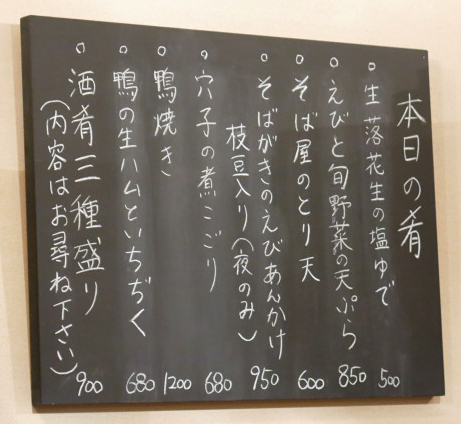 本日の肴
○生落花生の塩ゆで 500
○えびと旬野菜の天ぷら 850
○そば屋のとり天 600
○そばがきのえびあんかけ 950
枝豆入り(夜のみ)
○穴子の煮こごり 680
○鴨焼き 1200
○鴨の生ハムといちぢく 680
○酒肴三種盛り 900
(内容はお尋ね下さい)